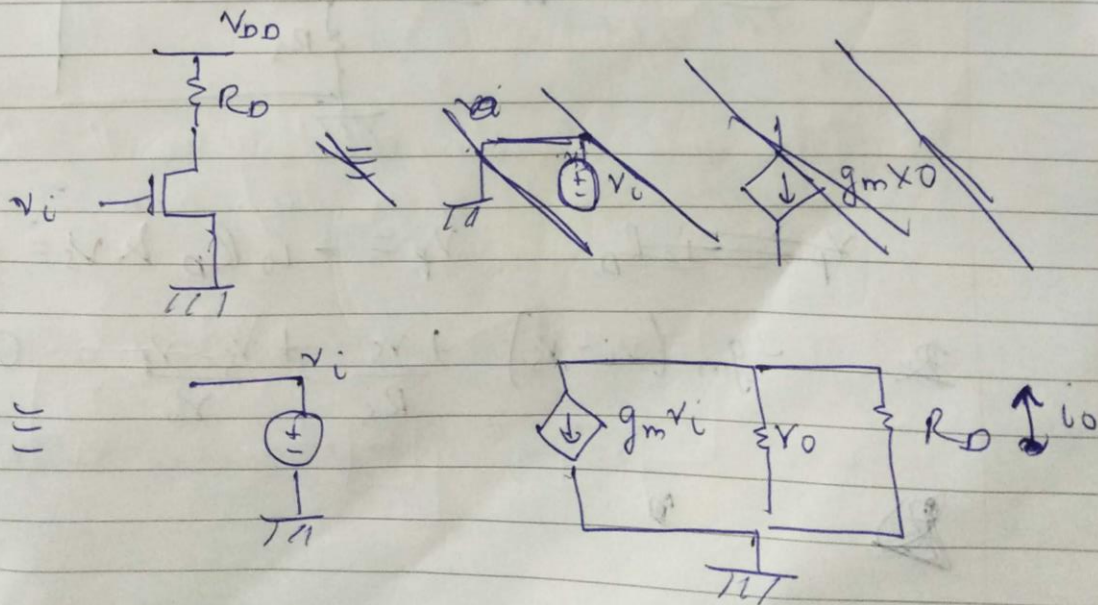 V_DD
R_D
v_i
v_i g_m x 0
≡ v_i
g_m v_i r_o R_D i_o